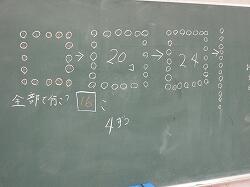 → 20こ → 24
全部で何こ? 16こ
4ずつ